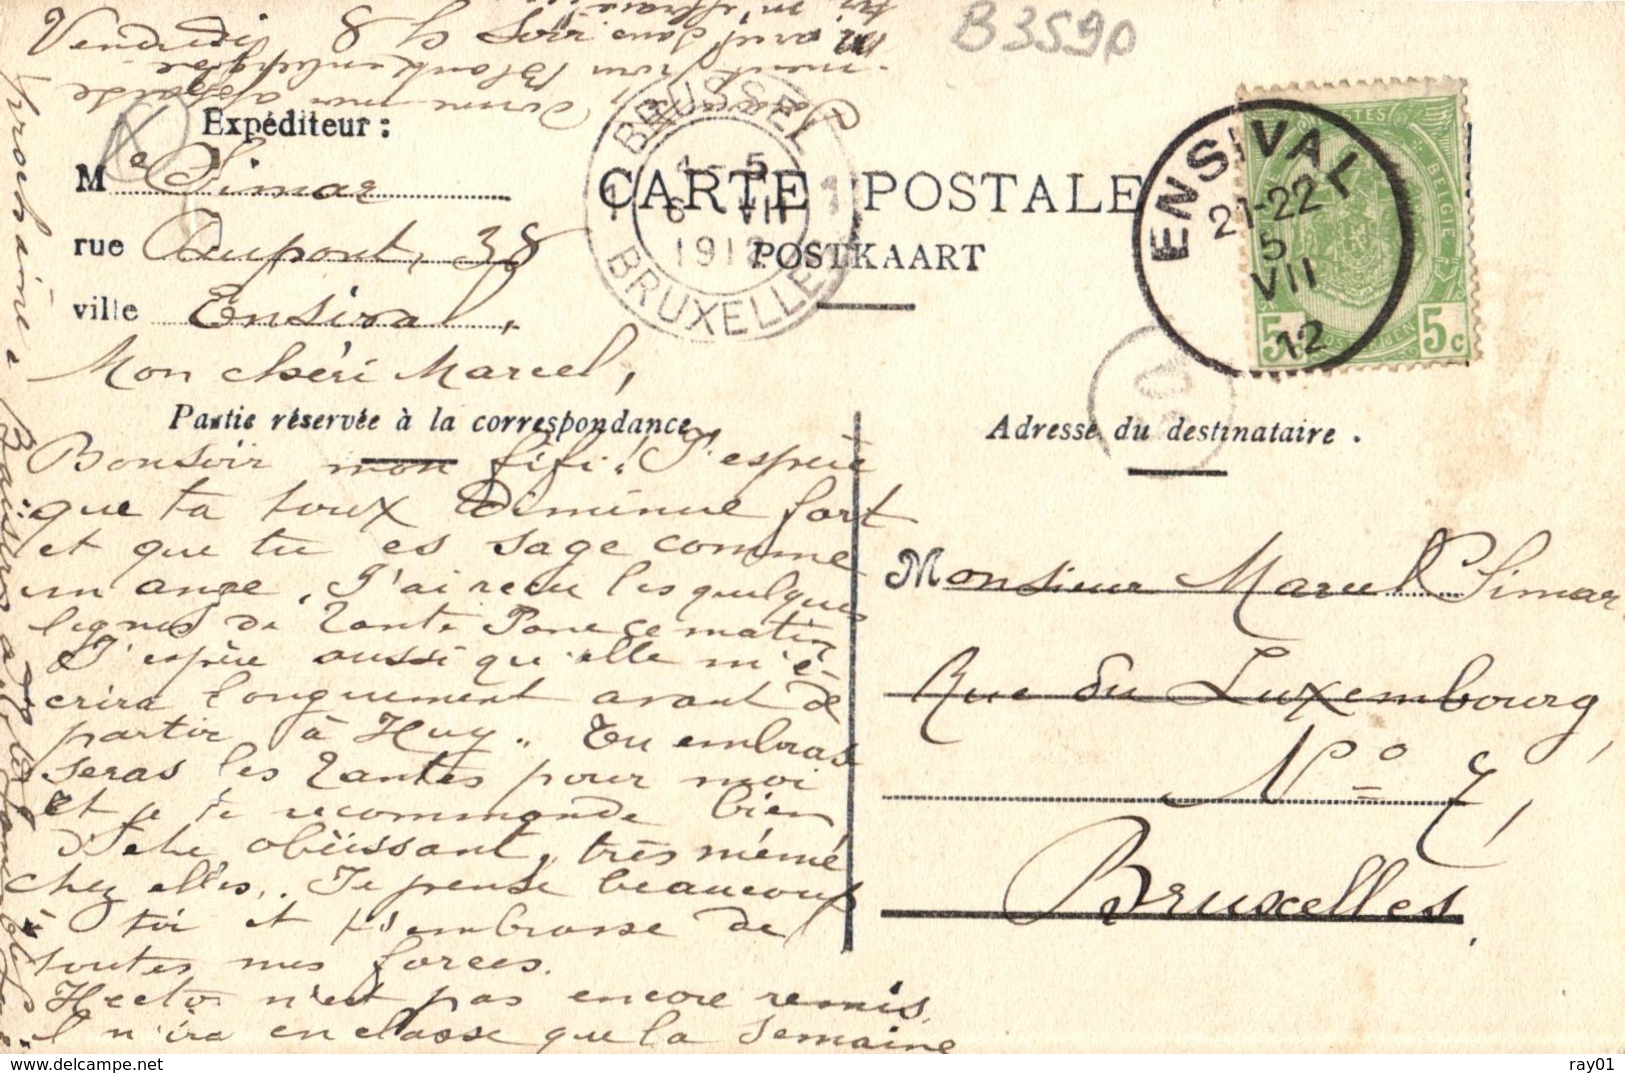 B3590
Vendredi 8 h soir
Expéditeur :
Me Simar
rue Dupont, 38
ville Ensival,
BRUSSEL
4 - 5
6 VII
1912
BRUXELLES
CARTE POSTALE
POSTKAART
ENSIVAL
21-22
5
VII
12
BELGIE
5c 5c
Mon chéri Marcel,
Partie réservée à la correspondance
Adresse du destinataire.
Bonsoir mon fifi! J'espère
que ta toux diminue fort
et que tu es sage comme
un ange. J'ai reçu les quelques
lignes de Tante ce matin
J'espère aussi qu'elle m'é-
crira longuement avant de
partir à Huy.. Tu embras
seras les Tantes pour moi
et je te recommande bien
d'être obéissant, très même
chez elles.. Je pense beaucoup
à toi et t'embrasse de
toutes mes forces.
Hector n'est pas encore remis,
il n'ira en classe que la semaine
prochaine.
Monsieur Marcel Simar
Rue du Luxembourg,
No 7,
Bruxelles.
ray01